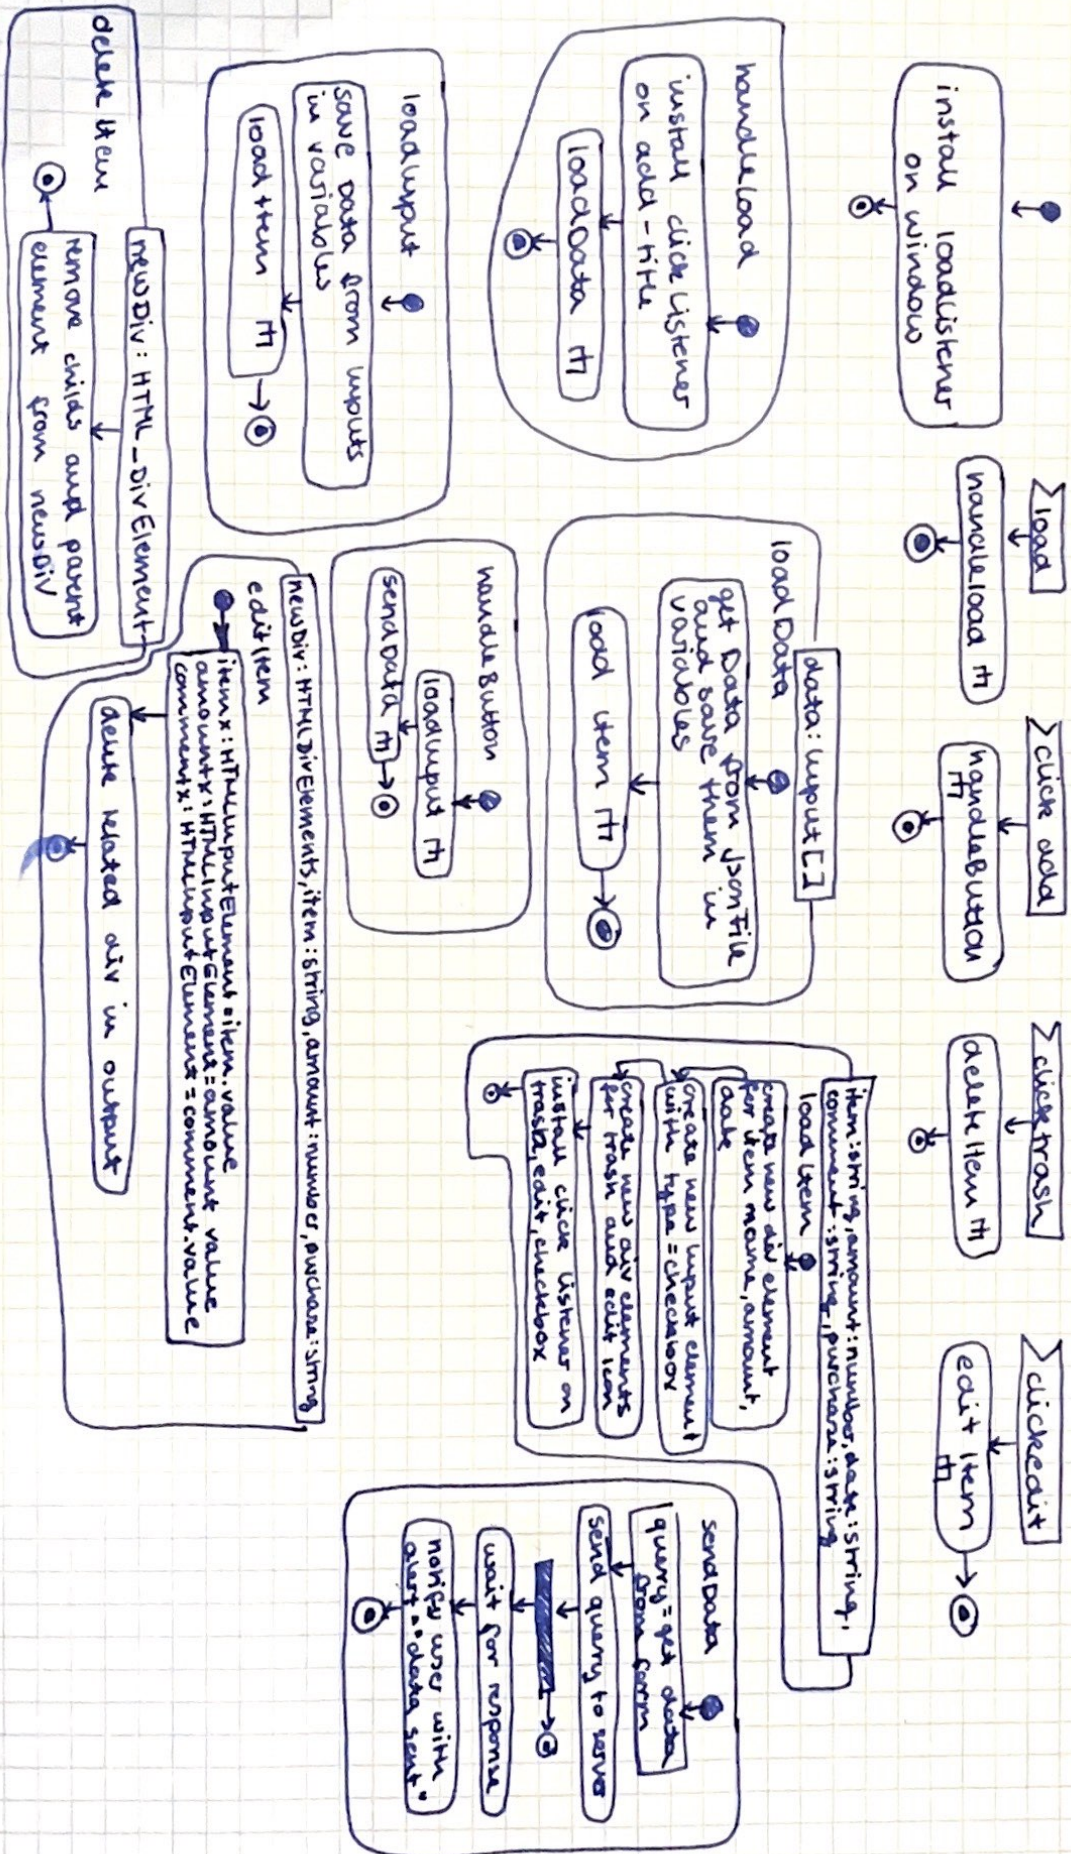 install loadlistener
on window
load
handleload
click add
handleButton
click trash
deleteItem
click edit
edit Item
handleload
install clicklistener
on add-title
loadData
data: Input[]
loadData
get Data from JsonFile
and save them in
variables
load item
item:string, amount:number, date:string,
comment:string, purchase:string
loadItem
create new div element
for item name, amount,
date
create new input element
with type=checkbox
create new div elements
for trash and edit icon
install click listener on
trash, edit, checkbox
sendData
query=get data
from form
send query to server
wait for response
notify user with
alert="data sent"
loadInput
save Data from inputs
in variables
load item
handleButton
loadInput
sendData
newDiv: HTMLDivElements, item:string, amount:number, purchase:string
editItem
itemx: HTMLInputElement = item.value
amountx: HTMLInputElement = amount value
commentx: HTMLInputElement = comment.value
delete related div in output
newDiv: HTML_DivElement
delete Item
remove childs and parent
element from newDiv